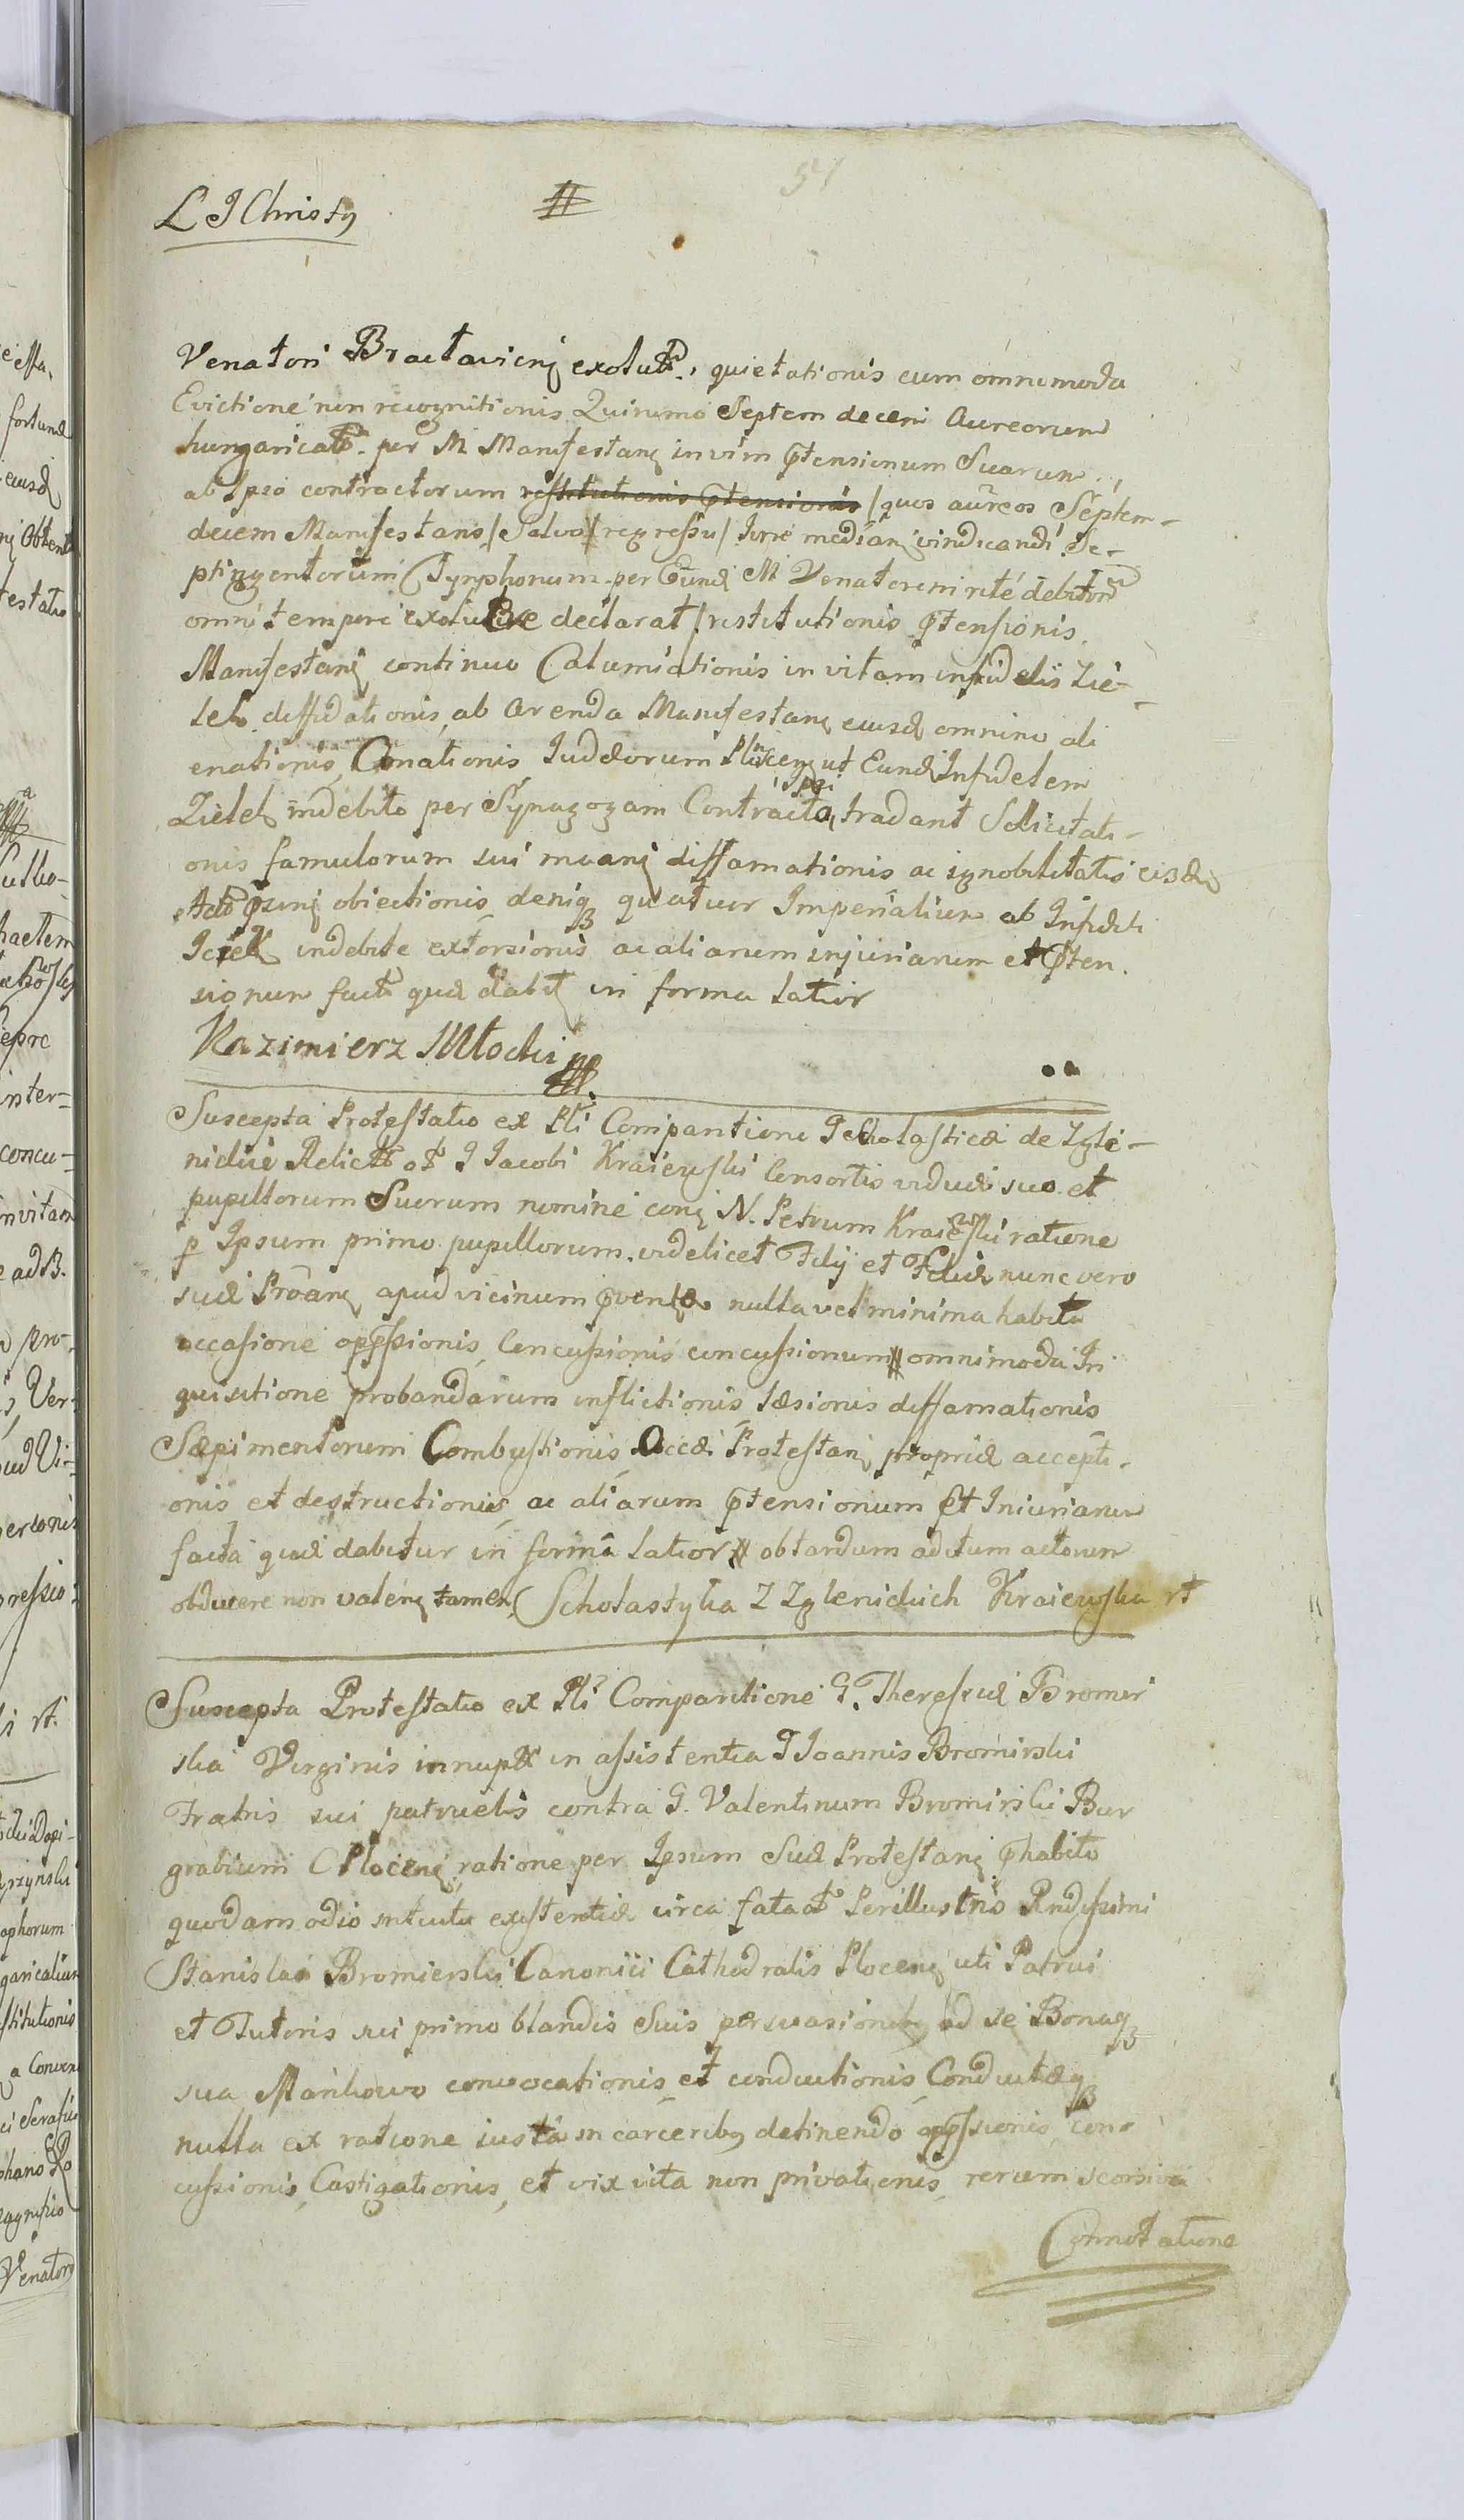 54
L J Christ9
Venatori Bractaviens exolut., quietationis cum omnimoda
Evictione non recognitionis Quinimo Septem decem Aureorum
hungarical. per M Manifestans in vim ptensionum Suarum
ab Ipso contractorum restitutionis ptensionis /quos aureos Septem-
decem Manifestans /Salvo regressu/ Iure median vindicandi Se-
ptingentorum Tynphonum per Eund M Venatorem rite debitor
omni tempore exolutere declarat/ restitutionis ptensionis
Manifestans continuo Calumiationis in vitam infidelis Zie-
lek diffidationis, ab Arenda Manifestans eiusd omnino ali
enationis, Conationis Iudæorum Plocens ut Eund Infidelem
Zielek indebite per Synagogam Contracto Ipsi tradant Sollicitati-
onis famulorum sui diffamationis ac ignobilitatis eisd
obiectionis deniq quatuor Imperialium ab Infideli
Iciek indebite extorsionis ac aliarum injuriarum et pten-
sionum fact quæ dabit in forma latior
Kazimierz Młocki
Suscepta Protestatio ex Pli Comparitione G Scholasticæ de Zgle-
nickie Relict ol G Iacobi Kraiewski Consortis viduæ suo et
pupillorum Suorum nomine con N. Petrum Kraiewski ratione
p Ipsum primo pupillorum videlicet Filij et Filiæ nunc vero
suæ Protan apud vicinum pventæ nulla vel minima habita
occasione oppssionis, Concussionis concussionum omnimoda In
quisitione probandarum inflictionis læsionis diffamationis
Sæpimentorum Combustionis Occæ Protestan propriæ accepti-
onis et destructionis, ac aliarum ptensionum et Iniuriarum
facta quæ dabitur in forma latior ob tardum aditum actorum
obducere non valens tamen Scholastyka Z Zglenickich Kraiewska rt
Suscepta Protestatio ex Pli Comparitione G. Theressiæ Bromir
ska Virginis innuptæ in assistentia G Ioannis Bromirski
Fratris sui patruelis contra G. Valentinum Bromirski Bur
grabium C Plocens ratione per Ipsum Suæ Protestans phabito
quodam odio intuitu existentiæ circa fata ol Perillustris Rndissimi
Stanislai Bromierski Canonici Cathedralis Plocens uti Patrui
et Tutoris sui primo blandis Suis persuasionib9 ad se Bonaq
sua Mańkowo convocationis et conductionis, Conductæq
nulla ex ratione iusta in carcerib9 detinendo oppssionis con-
cussionis, Castigationis, et vix vita non privationis, rerum seorsiva
Connotatione